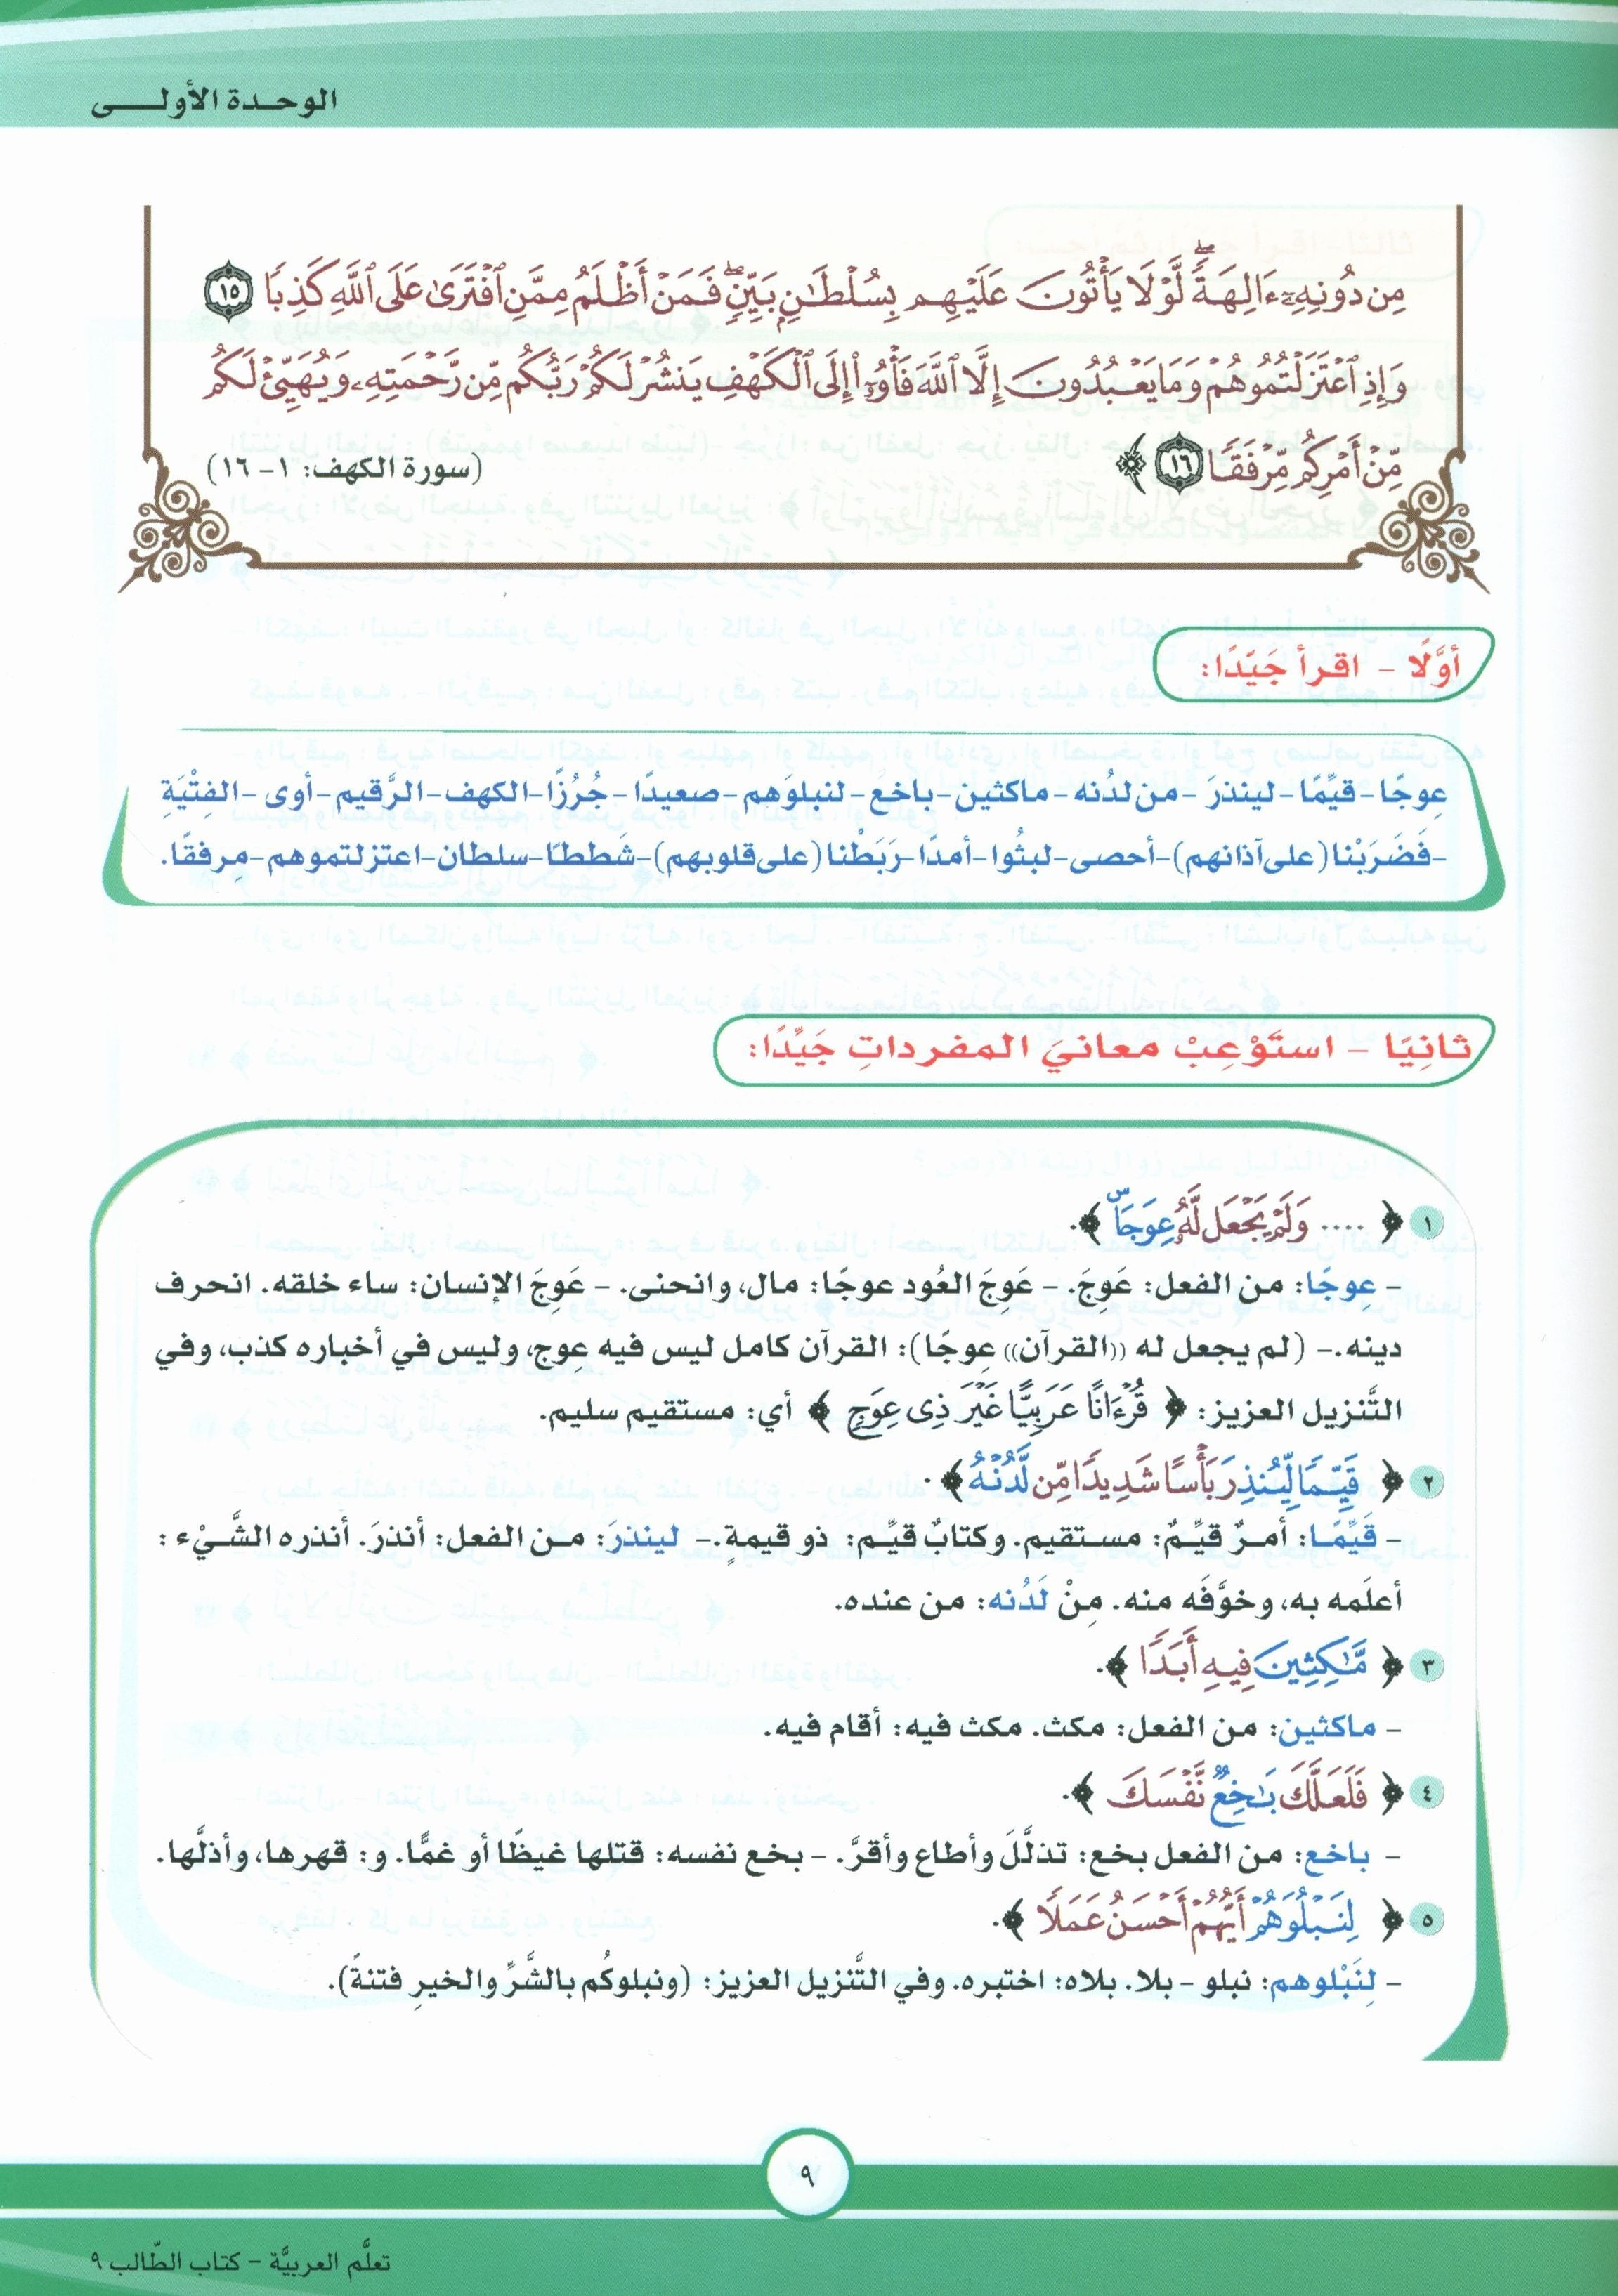 الوحدة الأولى
مِن دُونِهِۦٓ ءَالِهَةًۖ لَّوْلَا يَأْتُونَ عَلَيْهِم بِسُلْطَٰنٍۭ بَيِّنٍۖ فَمَنْ أَظْلَمُ مِمَّنِ ٱفْتَرَىٰ عَلَى ٱللَّهِ كَذِبًا ١٥
وَإِذِ ٱعْتَزَلْتُمُوهُمْ وَمَا يَعْبُدُونَ إِلَّا ٱللَّهَ فَأْوُۥٓا۟ إِلَى ٱلْكَهْفِ يَنشُرْ لَكُمْ رَبُّكُم مِّن رَّحْمَتِهِۦ وَيُهَيِّئْ لَكُم
مِّنْ أَمْرِكُم مِّرْفَقًا ١٦ ﴾ (سورة الكهف: ١- ١٦)
أوَّلًا - اقرأ جَيِّدًا:
عِوجًا - قيِّمًا - لينذرَ - من لدُنه - ماكثين - باخعٌ - لنبلوَهم - صعيدًا - جُرُزًا - الكهف - الرَّقيم - أوى - الفِتْيَةِ
- فَضَرَبْنا (على آذانهم) - أحصى - لبثُوا - أمدًا - رَبَطْنا (على قلوبهم) - شَططًا - سلطان - اعتزلتموهم - مِرفقًا.
ثانِيًا - استَوْعِبْ معانيَ المفرداتِ جَيِّدًا:
١ ﴿ .... وَلَمْ يَجْعَل لَّهُۥ عِوَجَاۜ ﴾.
- عِوجًا: من الفعل: عَوِجَ. - عَوِجَ العُود عوجًا: مال، وانحنى. - عَوِجَ الإنسان: ساء خلقه. انحرف
دينه.- (لم يجعل له ((القرآن)) عِوجًا): القرآن كامل ليس فيه عِوج، وليس في أخباره كذب، وفي
التَّنزيل العزيز: ﴿ قُرْءَانًا عَرَبِيًّا غَيْرَ ذِى عِوَجٍ ﴾ أي: مستقيم سليم.
٢ ﴿ قَيِّمًا لِّيُنذِرَ بَأْسًا شَدِيدًا مِّن لَّدُنْهُ ﴾.
- قَيِّمًا: أمرٌ قيِّمٌ: مستقيم. وكتابٌ قيِّم: ذو قيمةٍ.- لينذرَ: من الفعل: أنذرَ. أنذره الشَّيْء:
أعلَمه به، وخوَّفَه منه. مِنْ لَدُنه: من عنده.
٣ ﴿ مَّٰكِثِينَ فِيهِ أَبَدًا ﴾.
- ماكثين: من الفعل: مكث. مكث فيه: أقام فيه.
٤ ﴿ فَلَعَلَّكَ بَٰخِعٌ نَّفْسَكَ ﴾.
- باخع: من الفعل بخع: تذلَّلَ وأطاع وأقرَّ. - بخع نفسه: قتلها غيظًا أو غمًّا. و: قهرها، وأذلَّها.
٥ ﴿ لِنَبْلُوَهُمْ أَيُّهُمْ أَحْسَنُ عَمَلًا ﴾.
- لِنَبْلوهم: نبلو - بلا. بلاه: اختبره. وفي التَّنزيل العزيز: (ونبلوكُم بالشَّرِّ والخيرِ فتنةً).
٩
تعلَّم العربيَّة - كتاب الطّالب ٩